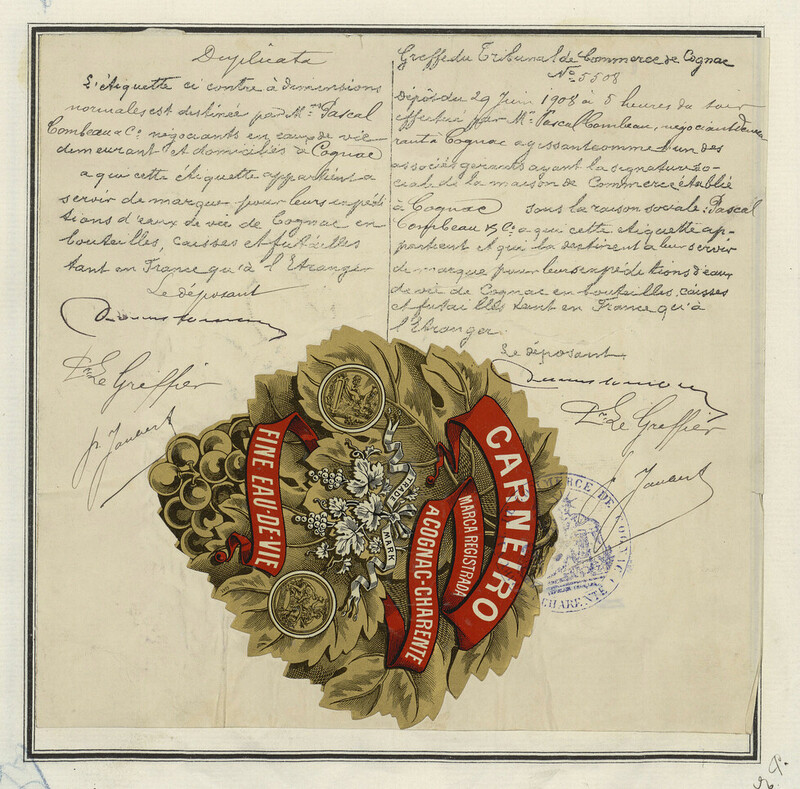 Duplicata
L'Étiquette ci contre à dimensions
normales est destinée par Mrs Pascal
Combeau & Ce négociants en eaux de vie
demeurant et domiciliés à Cognac
a qui cette étiquette appartient a
servir de marque pour leurs expédi
tions d'eaux de vie de Cognac en
bouteilles, caisses et futailles
tant en France qu'à l'Étranger
Le déposant
Pr Le Greffier
Greffe du Tribunal de Commerce de Cognac
No 5508
Dépôt du 29 Juin 1908 à 5 heures du soir
effectué par Mr Pascal Combeau, négociant demeu
rant à Cognac agissant comme l'un des
associés gérants ayant la signature so-
ciale de la maison de Commerce établie
à Cognac sous la raison sociale: Pascal
Combeau & Ce a qui cette étiquette ap-
partient et qui la destinent a leur servir
de marque pour leurs expéditions d'eaux
de vie de Cognac en bouteilles, caisses
et futailles tant en France qu'à
l'Étranger.
Le déposant
Pr Le Greffier
FINE EAU-DE-VIE
TRADE
MARK
CARNEIRO
MARCA REGISTRADA
A COGNAC-CHARENTE
MERCE DE COGNAC
CHARENTE